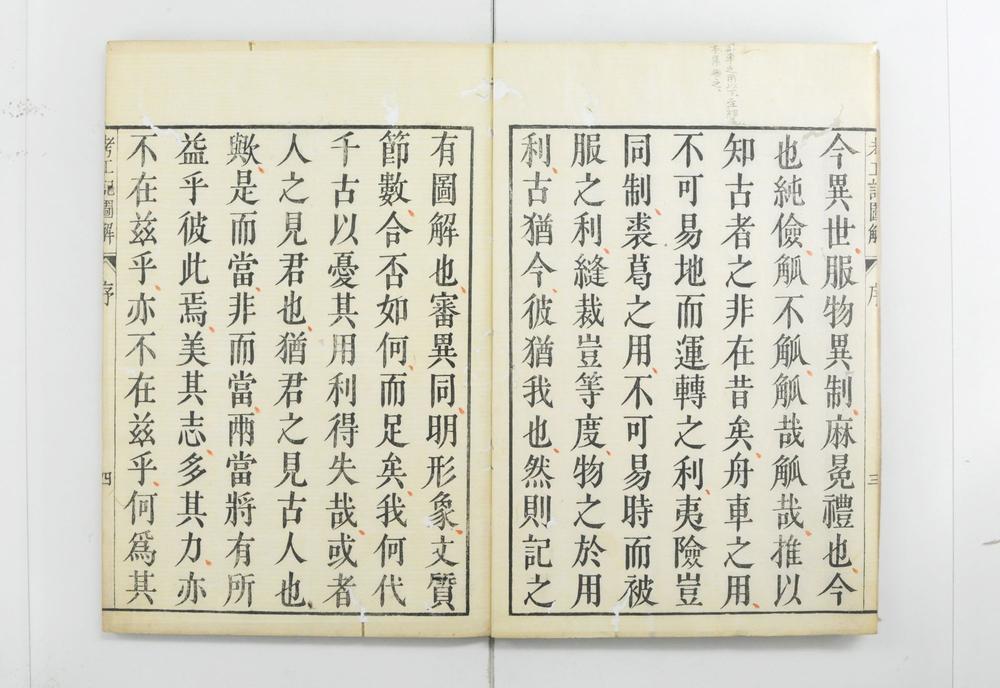 今異世服物異制麻冕禮也今
也純儉觚不觚觚哉觚哉推以
知古者之非在昔矣舟車之用
不可易地而運轉之利夷險豈
同制裘葛之用不可易時而被
服之利縫裁豈等度物之於用
利古猶今彼猶我也然則記之
有圖解也審異同明形象文質
節數合否如何而足矣我何代
千古以憂其用利得失哉或者
人之見君也猶君之見古人也
歟是而當非而當兩當將有所
益乎彼此焉美其志多其力亦
不在茲乎亦不在茲乎何爲其
考工記圖解 序 三
考工記圖解 序 四